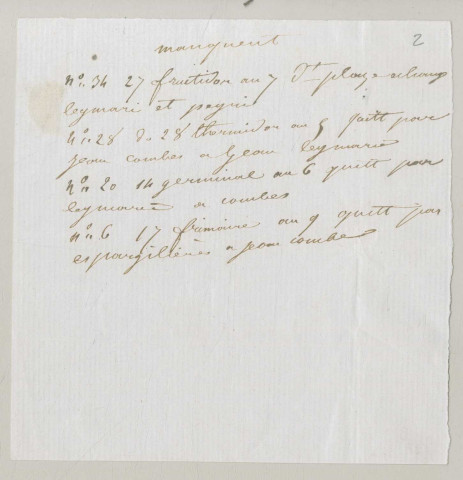 manquent
2
n° 34 27 fructidor an 7 
leymari et peyri
n° 28 d. 28 thermidor an 5 quitt par
jean combes a jean leymarie
n° 20 14 germinal an 6 quitt par
leymarie a combes
n° 6 17 frimaire an 9 quitt par
espargilières a jean combes